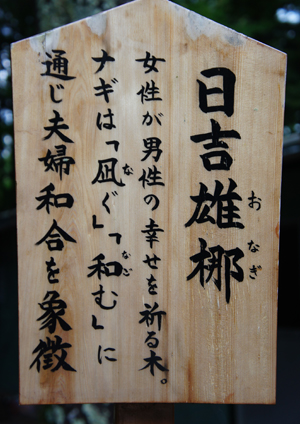 日吉雄梛
おなぎ
女性が男性の幸せを祈る木。
ナギは「凪ぐ」「和む」に
な
なご
通じ夫婦和合を象徴